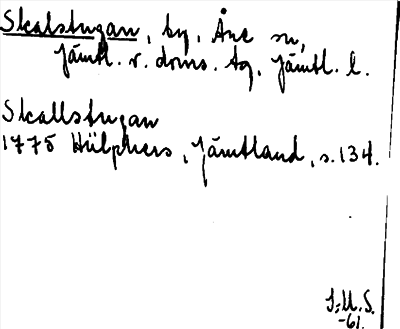 Skalstugan, by, Åre sn,
Jämtl. v. doms. tg, Jämtl. l.
Skallstugan
1775 Hülphers, Jämtland, s. 134.
I:M.S.
-61.